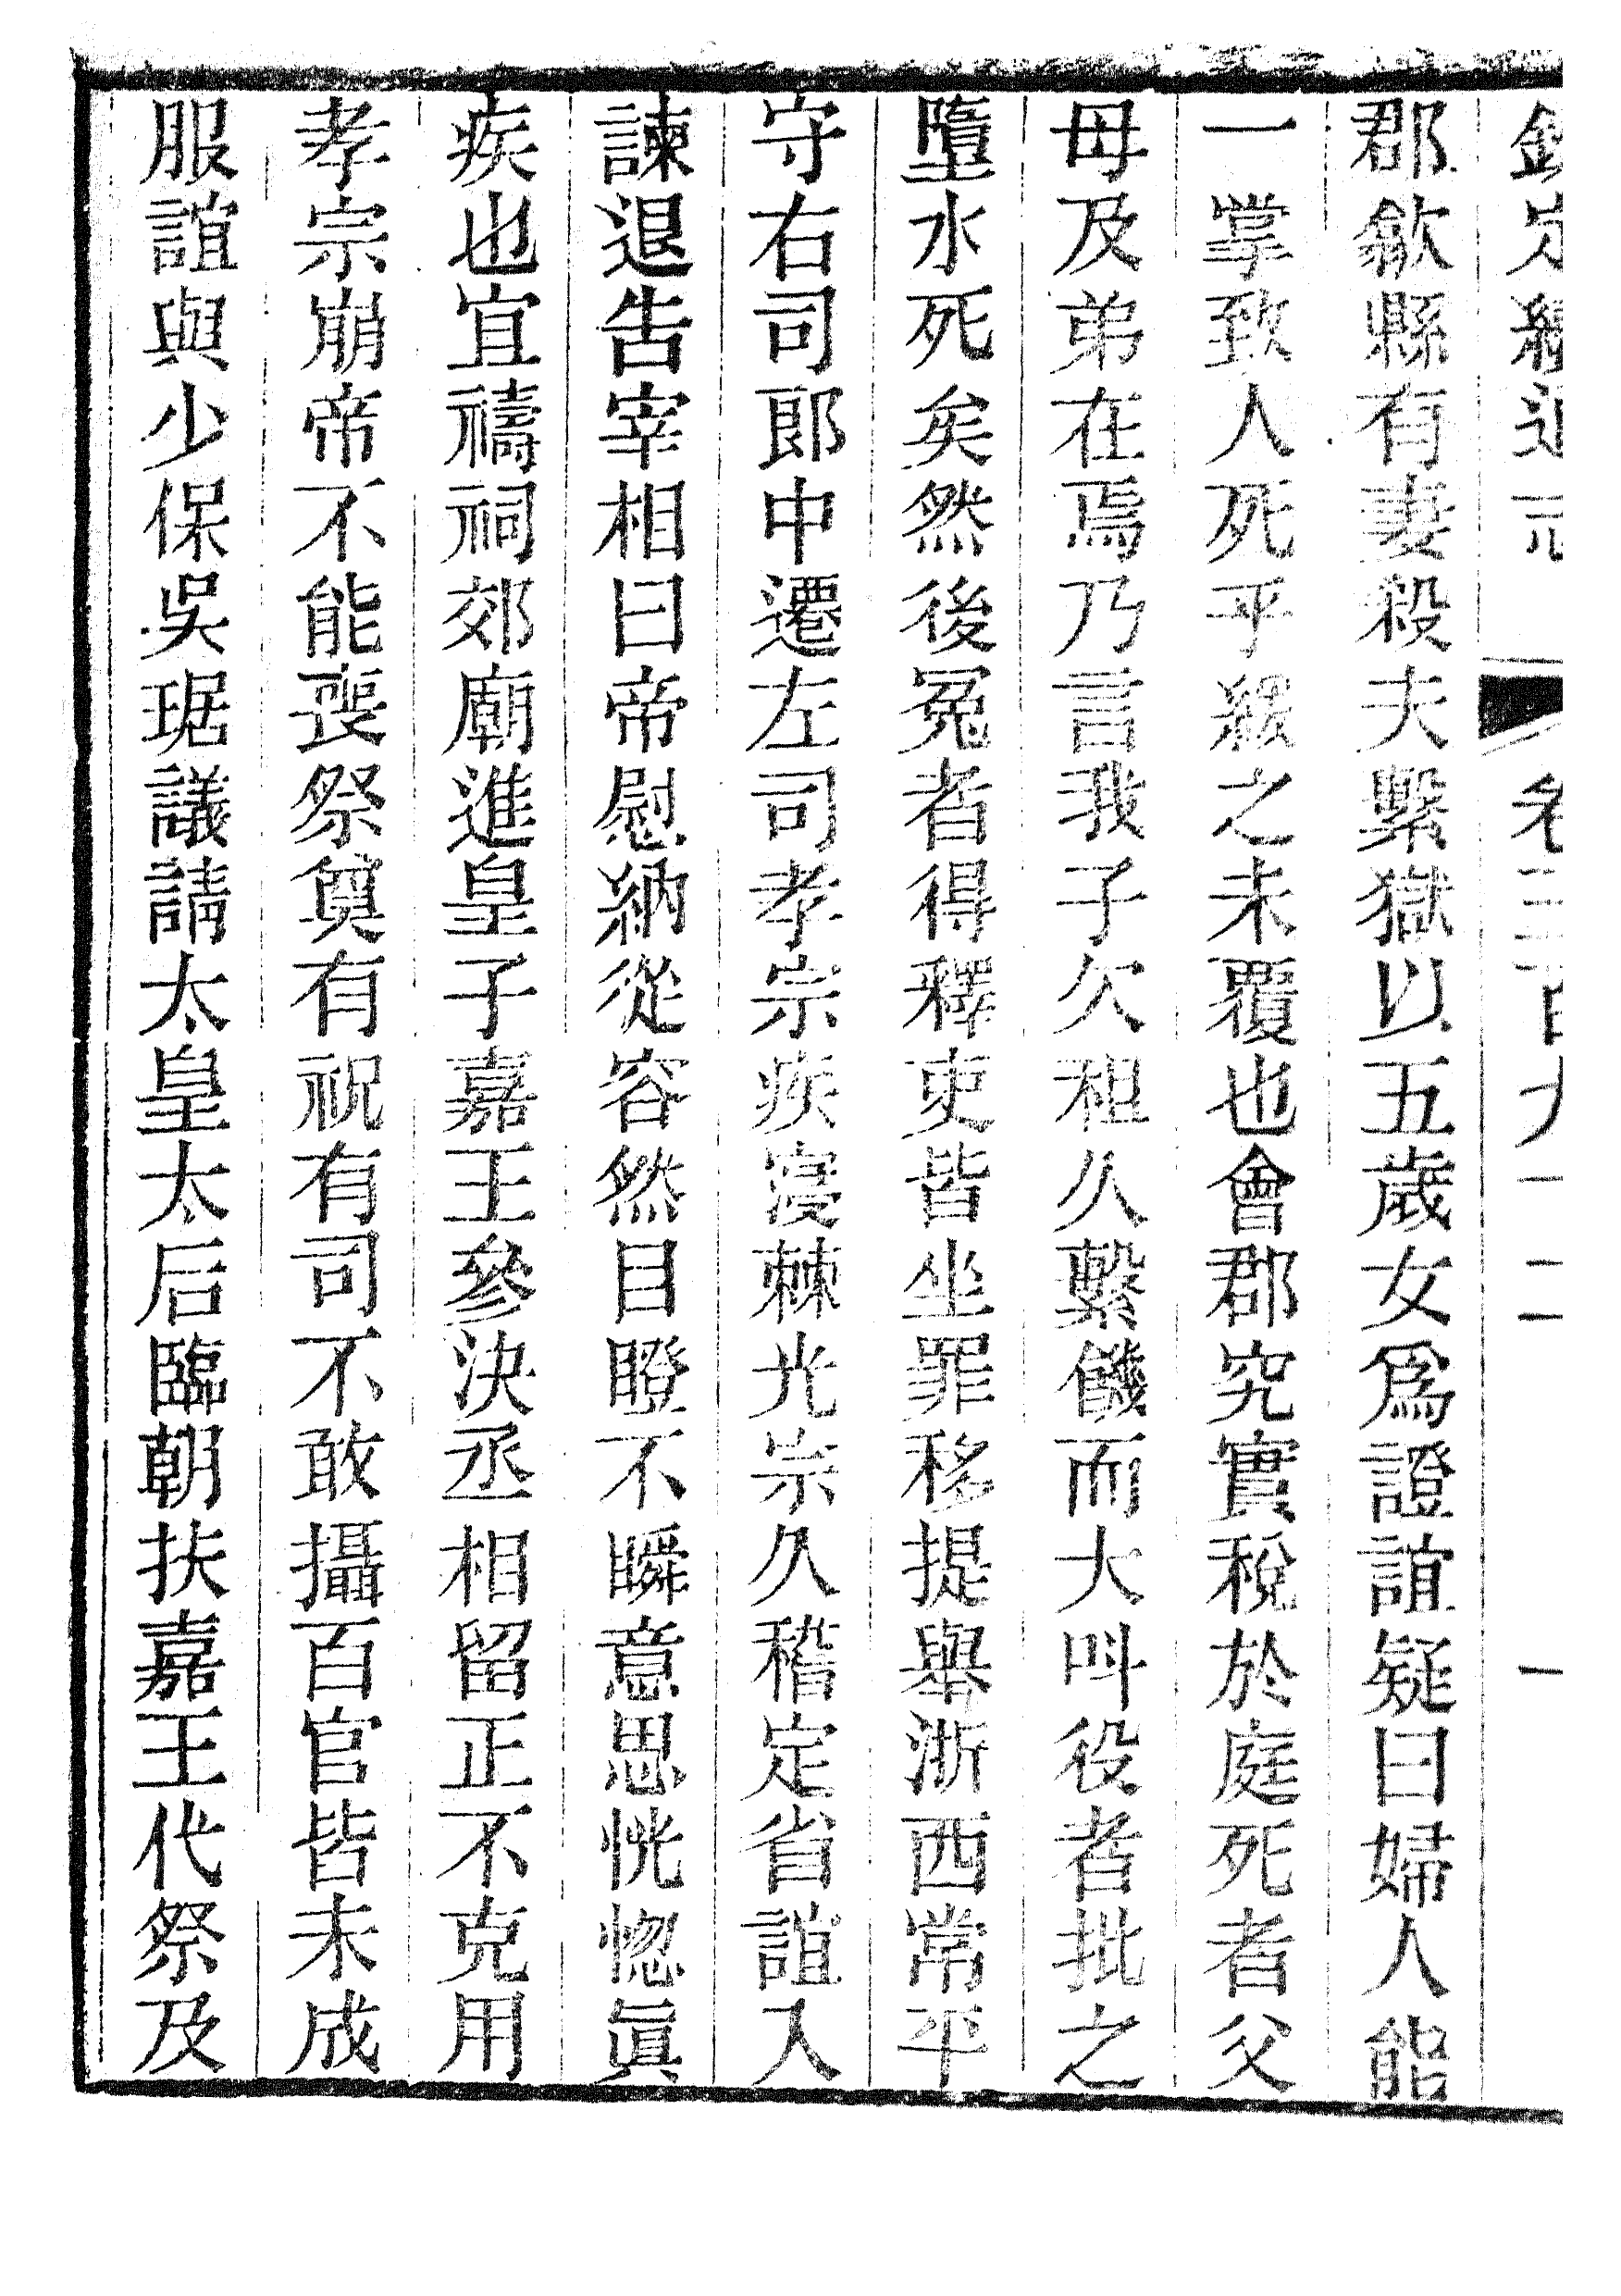 欽定續通 卷三百九十二 一
郡歙縣有妻殺夫繫獄以五歲女爲證誼疑曰婦人能
一掌致人死乎緩之未覆也會郡究實稅於庭死者父
母及弟在焉乃言我子欠租久繫饑而大叫役者批之
墮水死矣然後冤者得釋吏皆坐罪移提舉浙西常平
守右司郎中遷左司孝宗疾寖棘光宗久稽定省誼入
諫退告宰相曰帝慰納從容然目瞪不瞬意思恍惚眞
疾也宜禱祠郊廟進皇子嘉王參決丞相留正不克用
孝宗崩帝不能喪祭奠有祝有司不敢攝百官皆未成
服誼與少保吳琚議請太皇太后臨朝扶嘉王代祭及